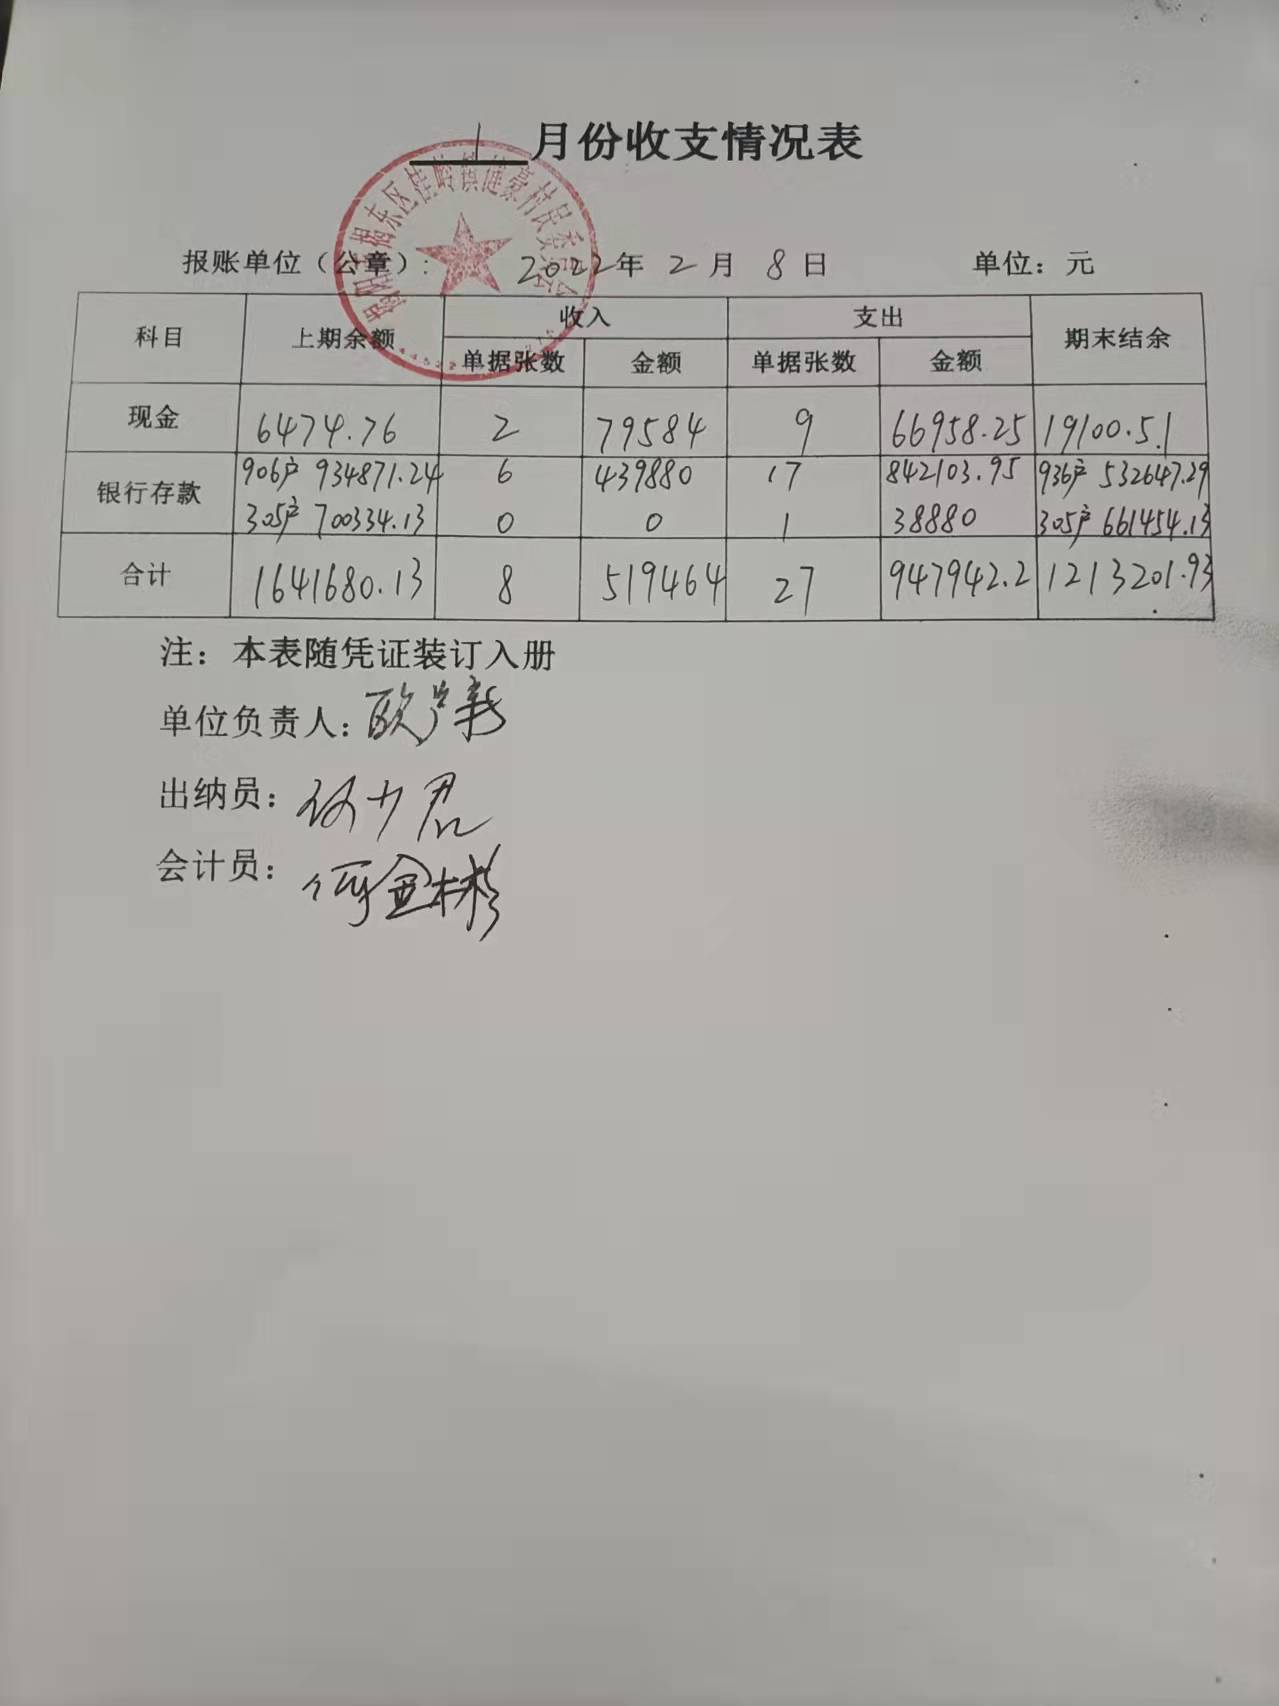 1月份收支情况表
报账单位（公章）: 2022年 2 月 8 日 单位：元
科目 上期余额 收入 支出 期末结余
单据张数 金额 单据张数 金额
现金 6474.76 2 79584 9 66958.25 19100.51
银行存款 906户 934871.24 6 439880 17 842103.95 936户 532647.29
305户 700334.13 0 0 1 38880 305户 661454.13
合计 1641680.13 8 519464 27 947942.2 1213201.93
注：本表随凭证装订入册
单位负责人：
出纳员：何少君
会计员：何金彬
揭东区桂岭镇 村民委员会